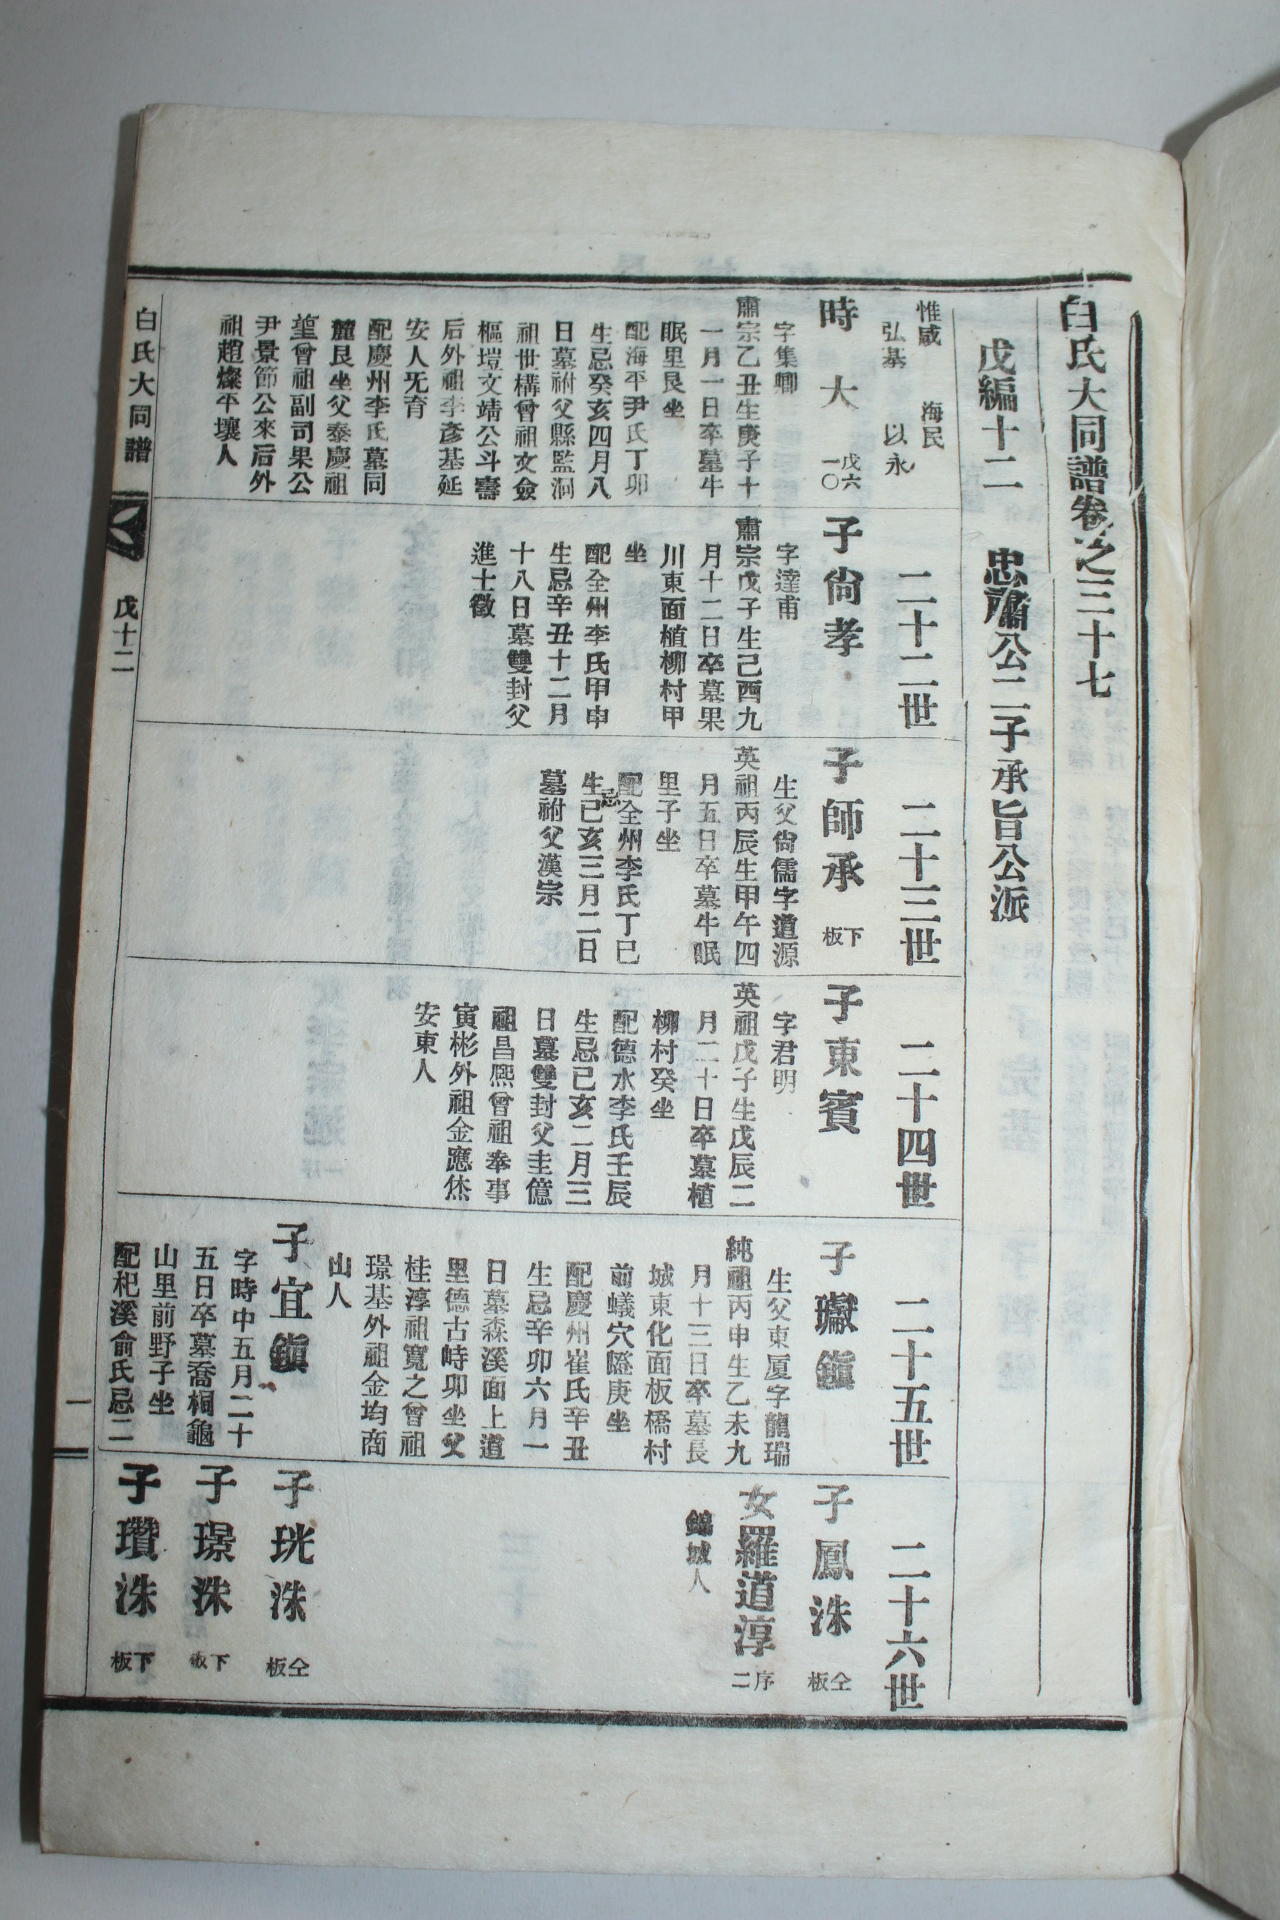 白氏大同譜卷之三十七
戊編十二　忠肅公二子承旨公派
惟咸　海民
弘基　以永
時大　戊六一〇
字集卿
肅宗乙丑生庚子十
一月一日卒墓牛
眠里艮坐
配海平尹氏丁卯
生忌癸亥四月八
日墓祔父縣監泂
祖世構曾祖文僉
樞塏文靖公斗壽
后外祖李彥基延
安人无育
配慶州李氏墓同
麓艮坐父泰慶祖
堇曾祖副司果公
尹景節公來后外
祖趙燦平壤人
二十二世
子尙孝
字達甫
肅宗戊子生己酉九
月十二日卒墓果
川東面植柳村甲
坐
配全州李氏甲申
生忌辛丑十二月
十八日墓雙封父
進士徵
二十三世
子師承　下板
生父尙儒字道源
英祖丙辰生甲午四
月五日卒墓牛眠
里子坐
配全州李氏丁巳
生忌己亥三月二日
墓祔父漢宗
二十四世
子東賓
字君明
英祖戊子生戊辰二
月二十日卒墓植
柳村癸坐
配德水李氏壬辰
生忌己亥二月三
日墓雙封父圭億
祖昌熙曾祖奉事
寅彬外祖金應烋
安東人
二十五世
子瓛鎭
生父東厦字龍瑞
純祖丙申生乙未九
月十三日卒墓長
城東化面板橋村
前蟻穴嶝庚坐
配慶州崔氏辛丑
生忌辛卯六月一
日墓森溪面上道
里德古峙卯坐父
桂淳祖寬之曾祖
璟基外祖金均商
山人
子宜鎭
字時中五月二十
五日卒墓喬桐龜
山里前野子坐
配杞溪俞氏忌二
二十六世
子鳳洙　仝板
女羅道淳　序二
錦城人
子珖洙　仝板
子璟洙　下板
子瓚洙　下板
白氏大同譜　戊十二　一